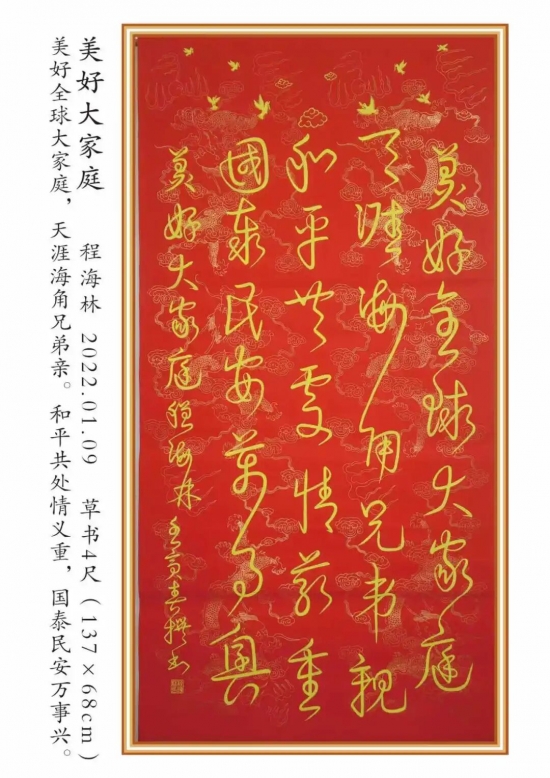 美好全球大家庭
天涯海角兄弟親
和平共處情義重
國泰民安萬事興
美好大家庭程海林壬寅春撰书
美好大家庭 程海林 2022.01.09 草书4尺(137×68cm)
美好全球大家庭,天涯海角兄弟亲。和平共处情义重,国泰民安万事兴。